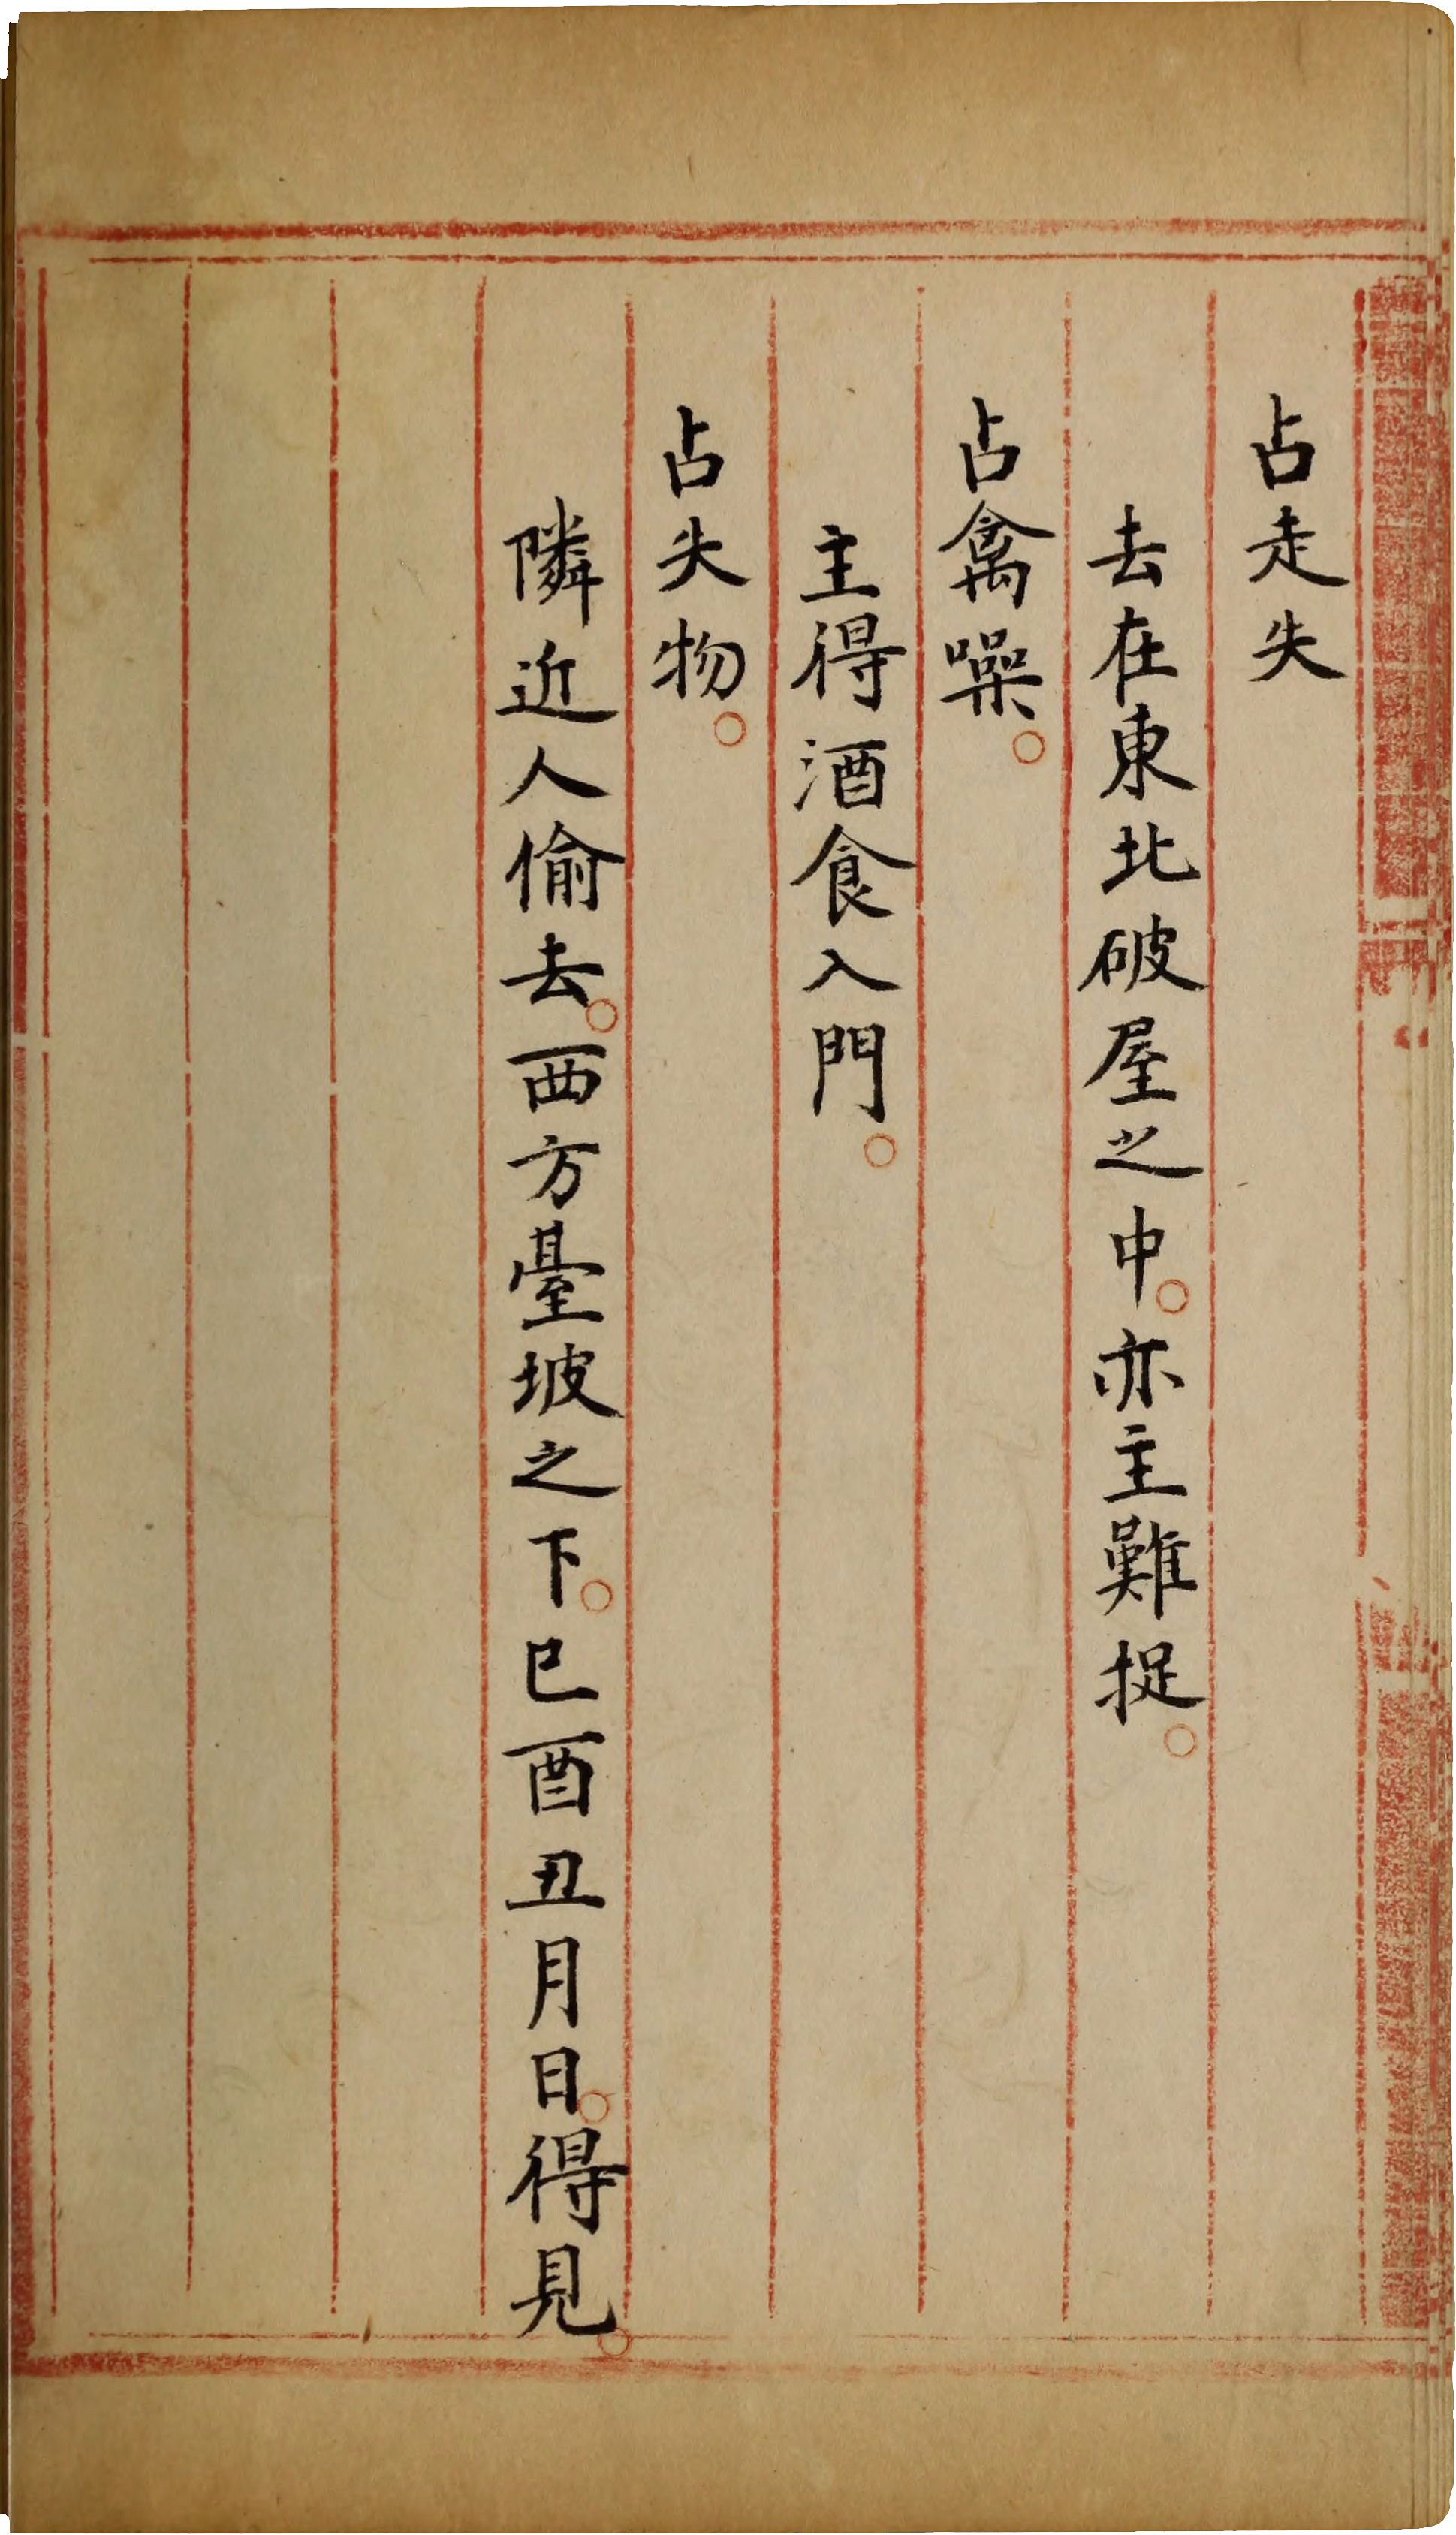 占走失
去在東北破屋之中。亦主難捉。
占禽噪。
主得酒食入門。
占失物。
隣近人偷去。西方臺坡之下。巳酉丑月日。得見。